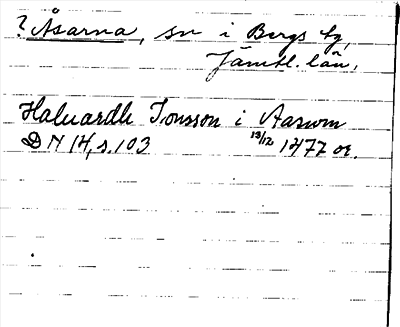 ? Åsarna, sn i Bergs tg,
Jämtl. län.
Haluardh Jonsson i Aasom
DN 14, s. 103 13/12 1477 or.